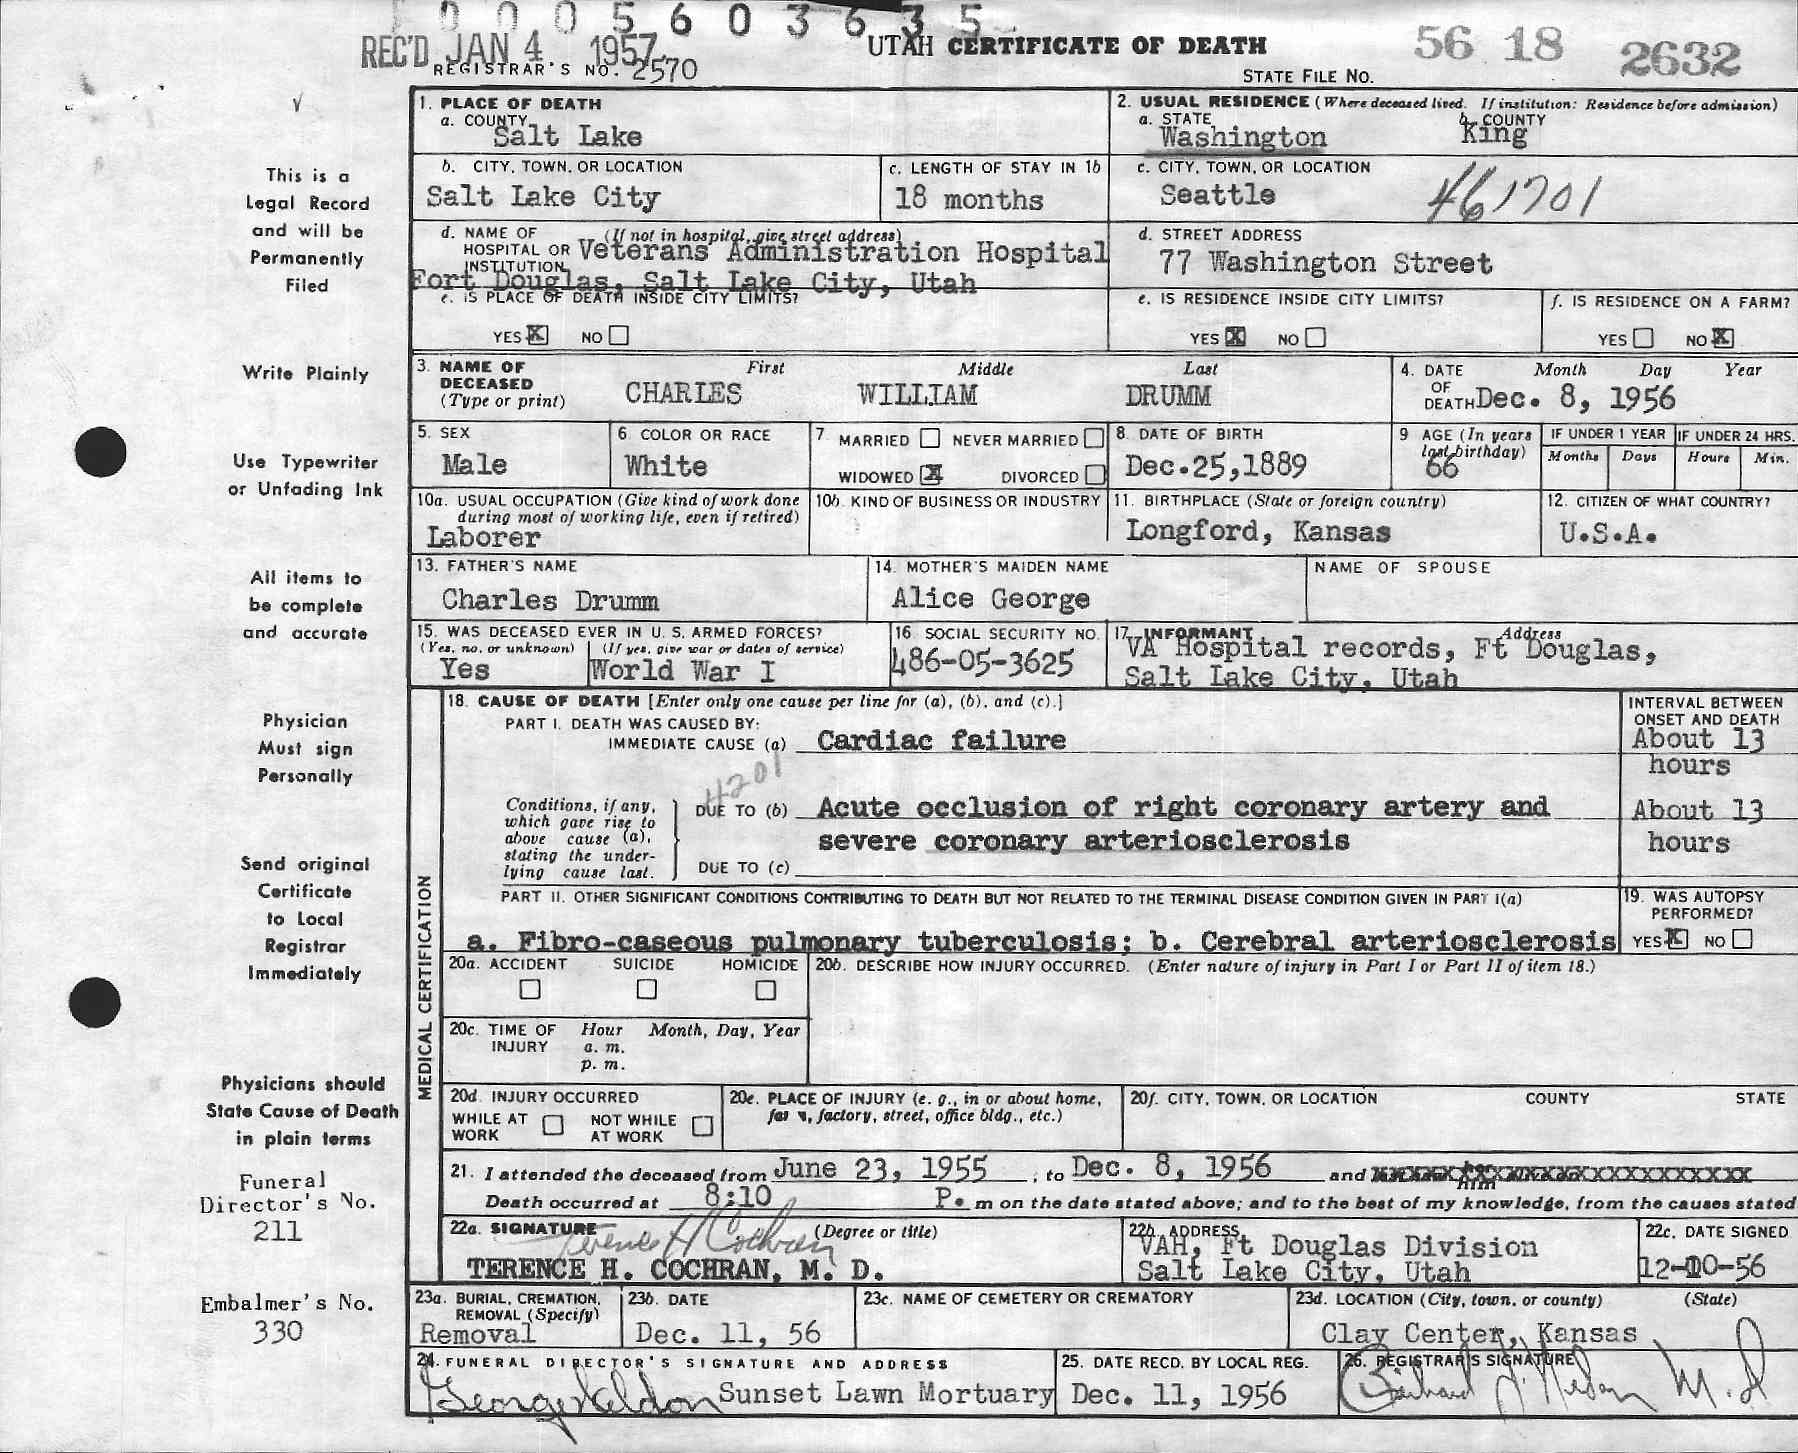 0 0 0 5 6 0 3 6 3 5
REC'D JAN 4 1957
REGISTRAR'S NO. 2570
UTAH CERTIFICATE OF DEATH
56 18 2632
STATE FILE NO.
This is a
Legal Record
and will be
Permanently
Filed
Write Plainly
Use Typewriter
or Unfading Ink
All items to
be complete
and accurate
Physician
Must sign
Personally
Send original
Certificate
to Local
Registrar
Immediately
Physicians should
State Cause of Death
in plain terms
Funeral
Director's No.
211
Embalmer's No.
330
1. PLACE OF DEATH
a. COUNTY
Salt Lake
2. USUAL RESIDENCE (Where deceased lived. If institution: Residence before admission)
a. STATE b. COUNTY
Washington King
b. CITY, TOWN, OR LOCATION
Salt Lake City
c. LENGTH OF STAY IN 1b
18 months
c. CITY, TOWN, OR LOCATION
Seattle 461701
d. NAME OF (If not in hospital, give street address)
HOSPITAL OR Veterans Administration Hospital
INSTITUTION
Fort Douglas, Salt Lake City, Utah
d. STREET ADDRESS
77 Washington Street
e. IS PLACE OF DEATH INSIDE CITY LIMITS?
YES X NO
e. IS RESIDENCE INSIDE CITY LIMITS?
YES X NO
f. IS RESIDENCE ON A FARM?
YES NO X
3. NAME OF First Middle Last
DECEASED
(Type or print) CHARLES WILLIAM DRUMM
4. DATE Month Day Year
OF
DEATH Dec. 8, 1956
5. SEX
Male
6. COLOR OR RACE
White
7. MARRIED NEVER MARRIED
WIDOWED X DIVORCED
8. DATE OF BIRTH
Dec.25,1889
9 AGE (In years
last birthday)
66
IF UNDER 1 YEAR IF UNDER 24 HRS.
Months Days Hours Min.
10a. USUAL OCCUPATION (Give kind of work done
during most of working life, even if retired)
Laborer
10b. KIND OF BUSINESS OR INDUSTRY
11. BIRTHPLACE (State or foreign country)
Longford, Kansas
12. CITIZEN OF WHAT COUNTRY?
U.S.A.
13. FATHER'S NAME
Charles Drumm
14. MOTHER'S MAIDEN NAME
Alice George
NAME OF SPOUSE
15. WAS DECEASED EVER IN U. S. ARMED FORCES?
(Yes, no, or unknown) (If yes, give war or dates of service)
Yes World War I
16. SOCIAL SECURITY NO.
486-05-3625
17. INFORMANT Address
VA Hospital records, Ft Douglas,
Salt Lake City, Utah
MEDICAL CERTIFICATION
18. CAUSE OF DEATH [Enter only one cause per line for (a), (b), and (c).]
PART I. DEATH WAS CAUSED BY:
IMMEDIATE CAUSE (a) Cardiac failure
INTERVAL BETWEEN
ONSET AND DEATH
About 13
hours
4201
Conditions, if any,
which gave rise to
above cause (a),
stating the under-
lying cause last.
DUE TO (b) Acute occlusion of right coronary artery and
severe coronary arteriosclerosis
About 13
hours
DUE TO (c)
PART II. OTHER SIGNIFICANT CONDITIONS CONTRIBUTING TO DEATH BUT NOT RELATED TO THE TERMINAL DISEASE CONDITION GIVEN IN PART I(a)
a. Fibro-caseous pulmonary tuberculosis; b. Cerebral arteriosclerosis
19. WAS AUTOPSY
PERFORMED?
YES X NO
20a. ACCIDENT SUICIDE HOMICIDE
20b. DESCRIBE HOW INJURY OCCURRED. (Enter nature of injury in Part I or Part II of item 18.)
20c. TIME OF Hour Month, Day, Year
INJURY a. m.
p. m.
20d. INJURY OCCURRED
WHILE AT NOT WHILE
WORK AT WORK
20e. PLACE OF INJURY (e. g., in or about home,
factory, street, office bldg., etc.)
20f. CITY, TOWN, OR LOCATION COUNTY STATE
21. I attended the deceased from June 23, 1955, to Dec. 8, 1956 and
him
Death occurred at 8:10 P. m on the date stated above; and to the best of my knowledge, from the causes stated
22a. SIGNATURE (Degree or title)
Terence H Cochran
TERENCE H. COCHRAN, M. D.
22b. ADDRESS
VAH, Ft Douglas Division
Salt Lake City, Utah
22c. DATE SIGNED
12-10-56
23a. BURIAL, CREMATION,
REMOVAL (Specify)
Removal
23b. DATE
Dec. 11, 56
23c. NAME OF CEMETERY OR CREMATORY
23d. LOCATION (City, town, or county) (State)
Clay Center, Kansas
24. FUNERAL DIRECTOR'S SIGNATURE AND ADDRESS
Sunset Lawn Mortuary
25. DATE RECD. BY LOCAL REG.
Dec. 11, 1956
26. REGISTRAR'S SIGNATURE
M.D